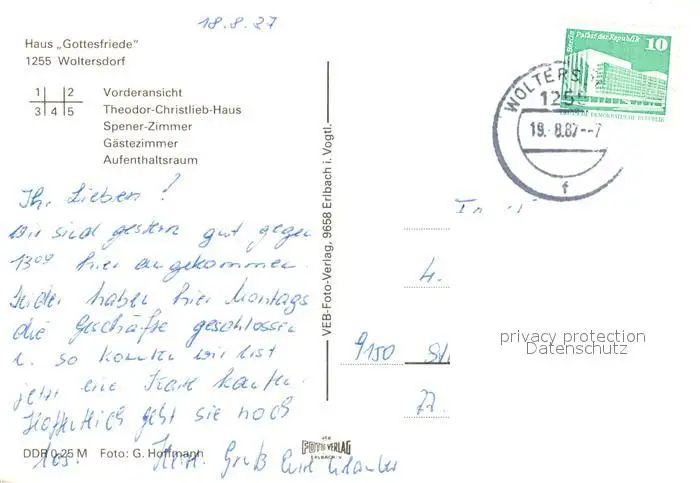 18.8.87
Haus „Gottesfriede"
1255 Woltersdorf
1 2 Vorderansicht
3 4 5 Theodor-Christlieb-Haus
Spener-Zimmer
Gästezimmer
Aufenthaltsraum
Ihr Lieben!
Wir sind gestern gut gegen
13°° hier angekommen.
Leider haben hier Montags
die Geschäfte geschlossen
u. so konnten wir erst
jetzt eine Karte kaufen.
Hoffentlich geht sie noch
los. Herzl. Gruß Eure Urlauber
DDR 0,25 M Foto: G. Hoffmann
VEB-Foto-Verlag, 9658 Erlbach i. Vogtl.
VEB
FOTO VERLAG
ERLBACH/V
Berlin Palast der Republik
10
DEUTSCHE DEMOKRATISCHE REPUBLIK
WOLTERS
125
19.-8.87--7
f
4.
9150
77.
privacy protection
Datenschutz